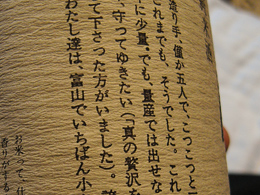 造り手、僅か五人で、こつこつと
これまでも、そうでした。これ
に少量、でも、量産では出せな
、守ってゆきたい（「真の贅沢を
て下さった方がいました）。
わたし達は、富山でいちばん小
お米で、仕
香りがする